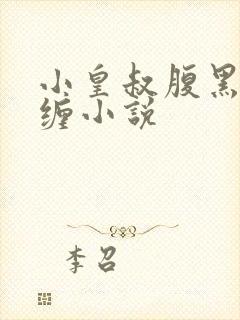 小皇叔腹黑
缠小说
李召